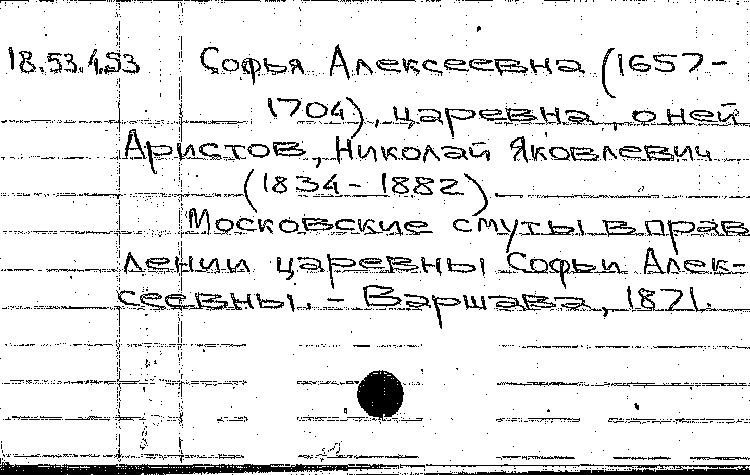 18.53.4.53 Софья Алексеевна (1657-
1704), царевна, о ней
Аристов, Николай Яковлевич
(1834-1882).
Московские смуты в прав
лении царевны Софьи Алек-
сеевны. - Варшава, 1871.